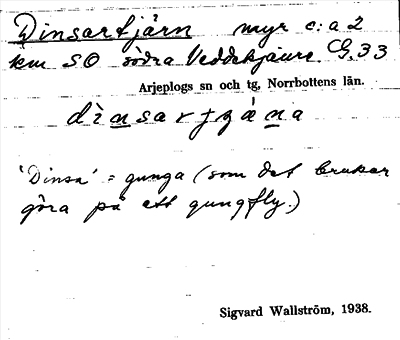 Dinsartjärn myr c:a 2
km SO södra Veddekjaure. G. 33
Arjeplogs sn och tg, Norrbottens län.
dìnsartjána
'Dinsa' = gunga (som det brukar
göra på ett gungfly.)
Sigvard Wallström, 1938.